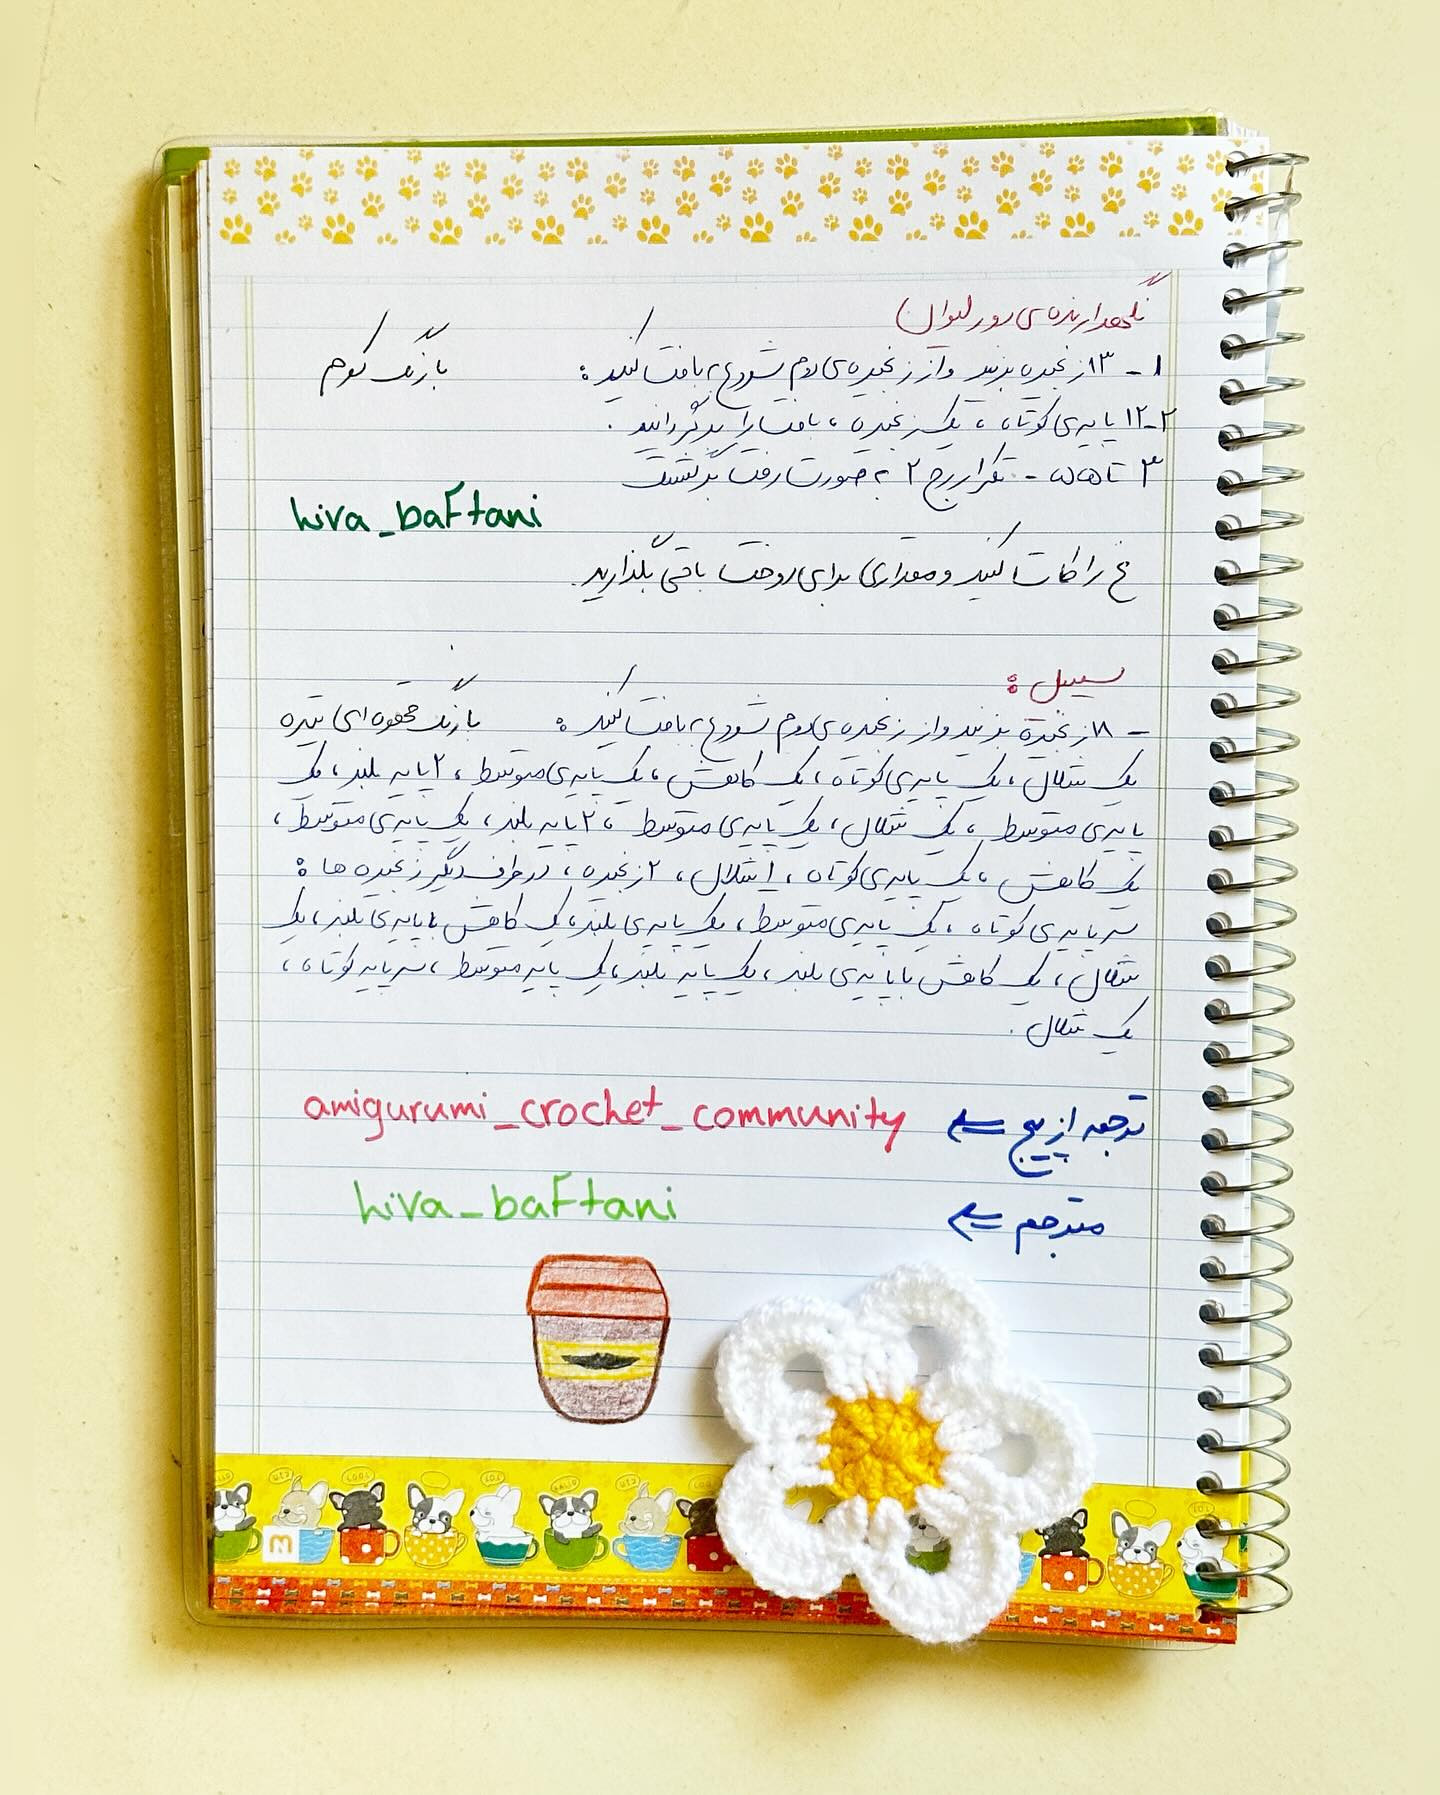 نگهدارنده‌ی دور لیوان
۱- ۱۳ زنجیره بزنید و از زنجیره‌ی دوم شروع به بافت کنید: با رنگ کرم
۲- ۱۲ پایه‌ی کوتاه، یک زنجیره، بافت را برگردانید.
۳ تا - تکرار رج ۲ به صورت رفت برگشت
hiva_baftani
نخ را کات کنید و مقداری برای دوخت باقی بگذارید.
سیبیل:
- ۱۸ زنجیره بزنید و از زنجیره‌ی دوم شروع به بافت کنید: با رنگ قهوه‌ای تیره
یک شلال، یک پایه‌ی کوتاه، یک کاهش، یک پایه‌ی متوسط، ۲ پایه بلند، یک
پایه‌ی متوسط، یک شلال، یک پایه‌ی متوسط، ۲ پایه بلند، یک پایه‌ی متوسط،
یک کاهش، یک پایه‌ی کوتاه، ۱ شلال، ۲ زنجیره، در طرف دیگر زنجیره ها:
سه پایه‌ی کوتاه، یک پایه‌ی متوسط، یک پایه‌ی بلند، یک کاهش با پایه‌ی بلند، یک
شلال، یک کاهش با پایه‌ی بلند، یک پایه بلند، یک پایه متوسط، سه پایه کوتاه،
یک شلال.
ترجمه از پیج ⇐ amigurumi_crochet_community
مترجم ⇐ hiva_baftani